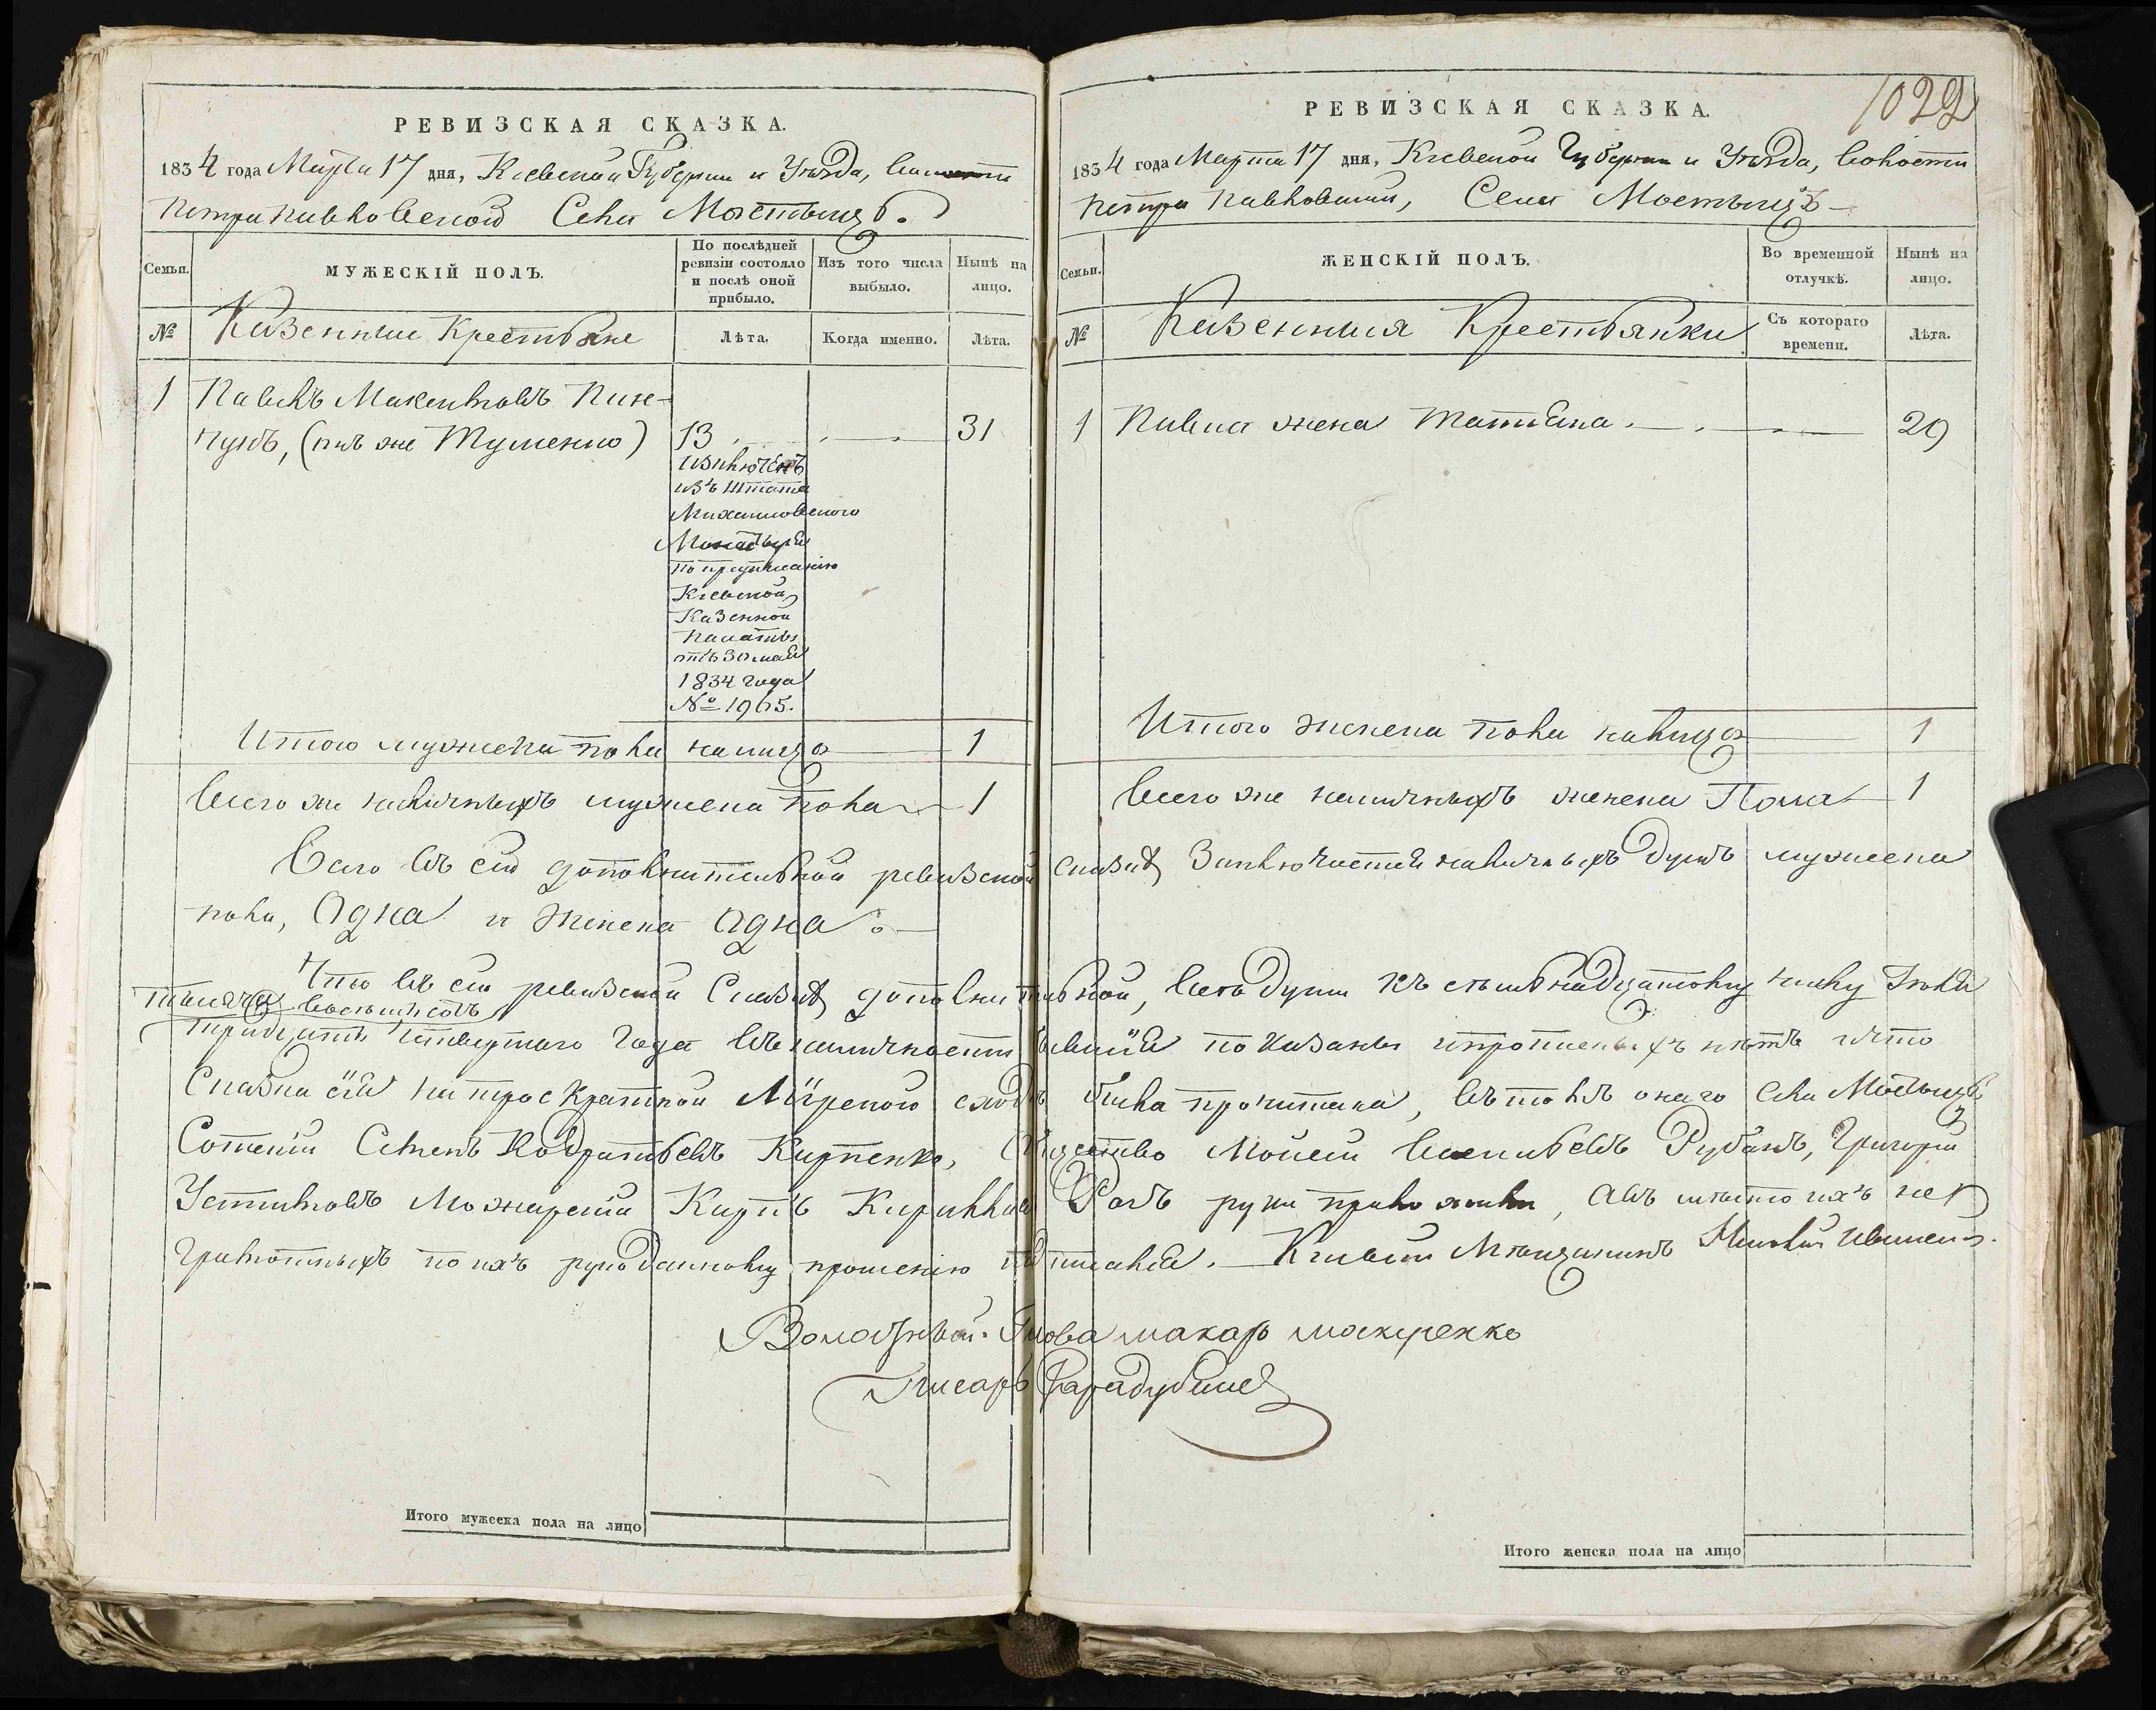 РЕВИЗСКАЯ СКАЗКА.
1834 года Марта 17 дня, Кіевской Губерніи и Уѣзда, Волости
Петропавловской Села Мостыщъ.
Семьи.
МУЖЕСКІЙ ПОЛЪ.
По послѣдней ревизіи состояло и послѣ оной прибыло.
Изъ того числа выбыло.
Нынѣ на лицо.
№
Казенные Крестьяне
Лѣта.
Когда именно.
Лѣта.
1 Павелъ Максимовъ Пин-
чукъ, (онъ же Туменко) 13 31
изключенъ
изъ штата
Михайловского
Монастыря
по предписанію
Кіевской
Казенной
Палаты
отъ 30 мая
1834 года
№ 1965.
Итого мужеска пола налицо 1
Всего же наличныхъ мужеска пола 1
1022
РЕВИЗСКАЯ СКАЗКА.
1834 года Марта 17 дня, Кіевской Губерніи и Уѣзда, Волости
Петропавловской, Села Мостыщъ
Семьи.
ЖЕНСКІЙ ПОЛЪ.
Во временной отлучкѣ.
Нынѣ на лицо.
№
Казенныя Крестьянки
Съ котораго времени.
Лѣта.
1 Павла жена Татіяна 29
Итого женска пола налицо 1
Всего же наличныхъ женска Пола 1
Всего въ сей дополнительной ревизской сказкѣ Заключается наличныхъ душъ мужеска
пола, Одна и женска Одна
Что въ сей ревизской Сказкѣ дополнительной, всѣ души къ семьнадцатому числу
тысяча восемьсотъ
тридцать четвертаго года въ наличности бывшія показаны и прописныхъ нѣтъ и что
Сказка сія на троекратной Мірской сходкѣ была прочитана, въ томъ онаго Села Мостыщъ
Сотскій Семенъ Кодратьевъ Карпенко, Мойсей Васильевъ Рубанъ, Григорій
Устимовъ Можарскій Карпъ Кириллов руки приложили, а вмѣсто ихъ не
грамотныхъ по ихъ рукоданному прошенію подписался. Кіевскій Мѣщанинъ
Волостный Голова макаръ макаренко
Писарь
Итого мужеска пола на лицо
Итого женска пола на лицо